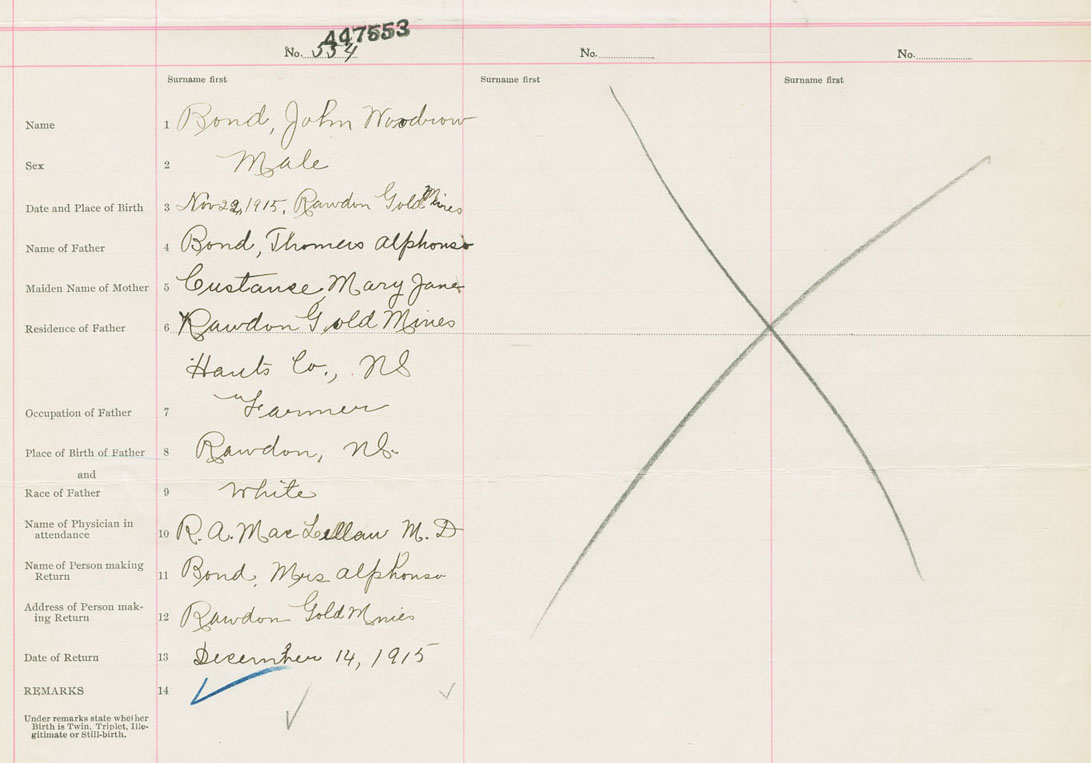 447553
No. 554 No. No.
Surname first Surname first Surname first
Name 1 Bond, John Woodrow
Sex 2 Male
Date and Place of Birth 3 Nov 22, 1915, Rawdon Gold Mines
Name of Father 4 Bond, Thomas Alphonso
Maiden Name of Mother 5 Custance, Mary Jane
Residence of Father 6 Rawdon Gold Mines
Hants Co., NS
Occupation of Father 7 " Farmer
Place of Birth of Father 8 Rawdon, NS.
and
Race of Father 9 White
Name of Physician in
attendance 10 R. A. MacLellan M. D
Name of Person making
Return 11 Bond, Mrs Alphonso
Address of Person mak-
ing Return 12 Rawdon Gold Mines
Date of Return 13 December 14, 1915
REMARKS 14
Under remarks state whether
Birth is Twin, Triplet, Ille-
gitimate or Still-birth.